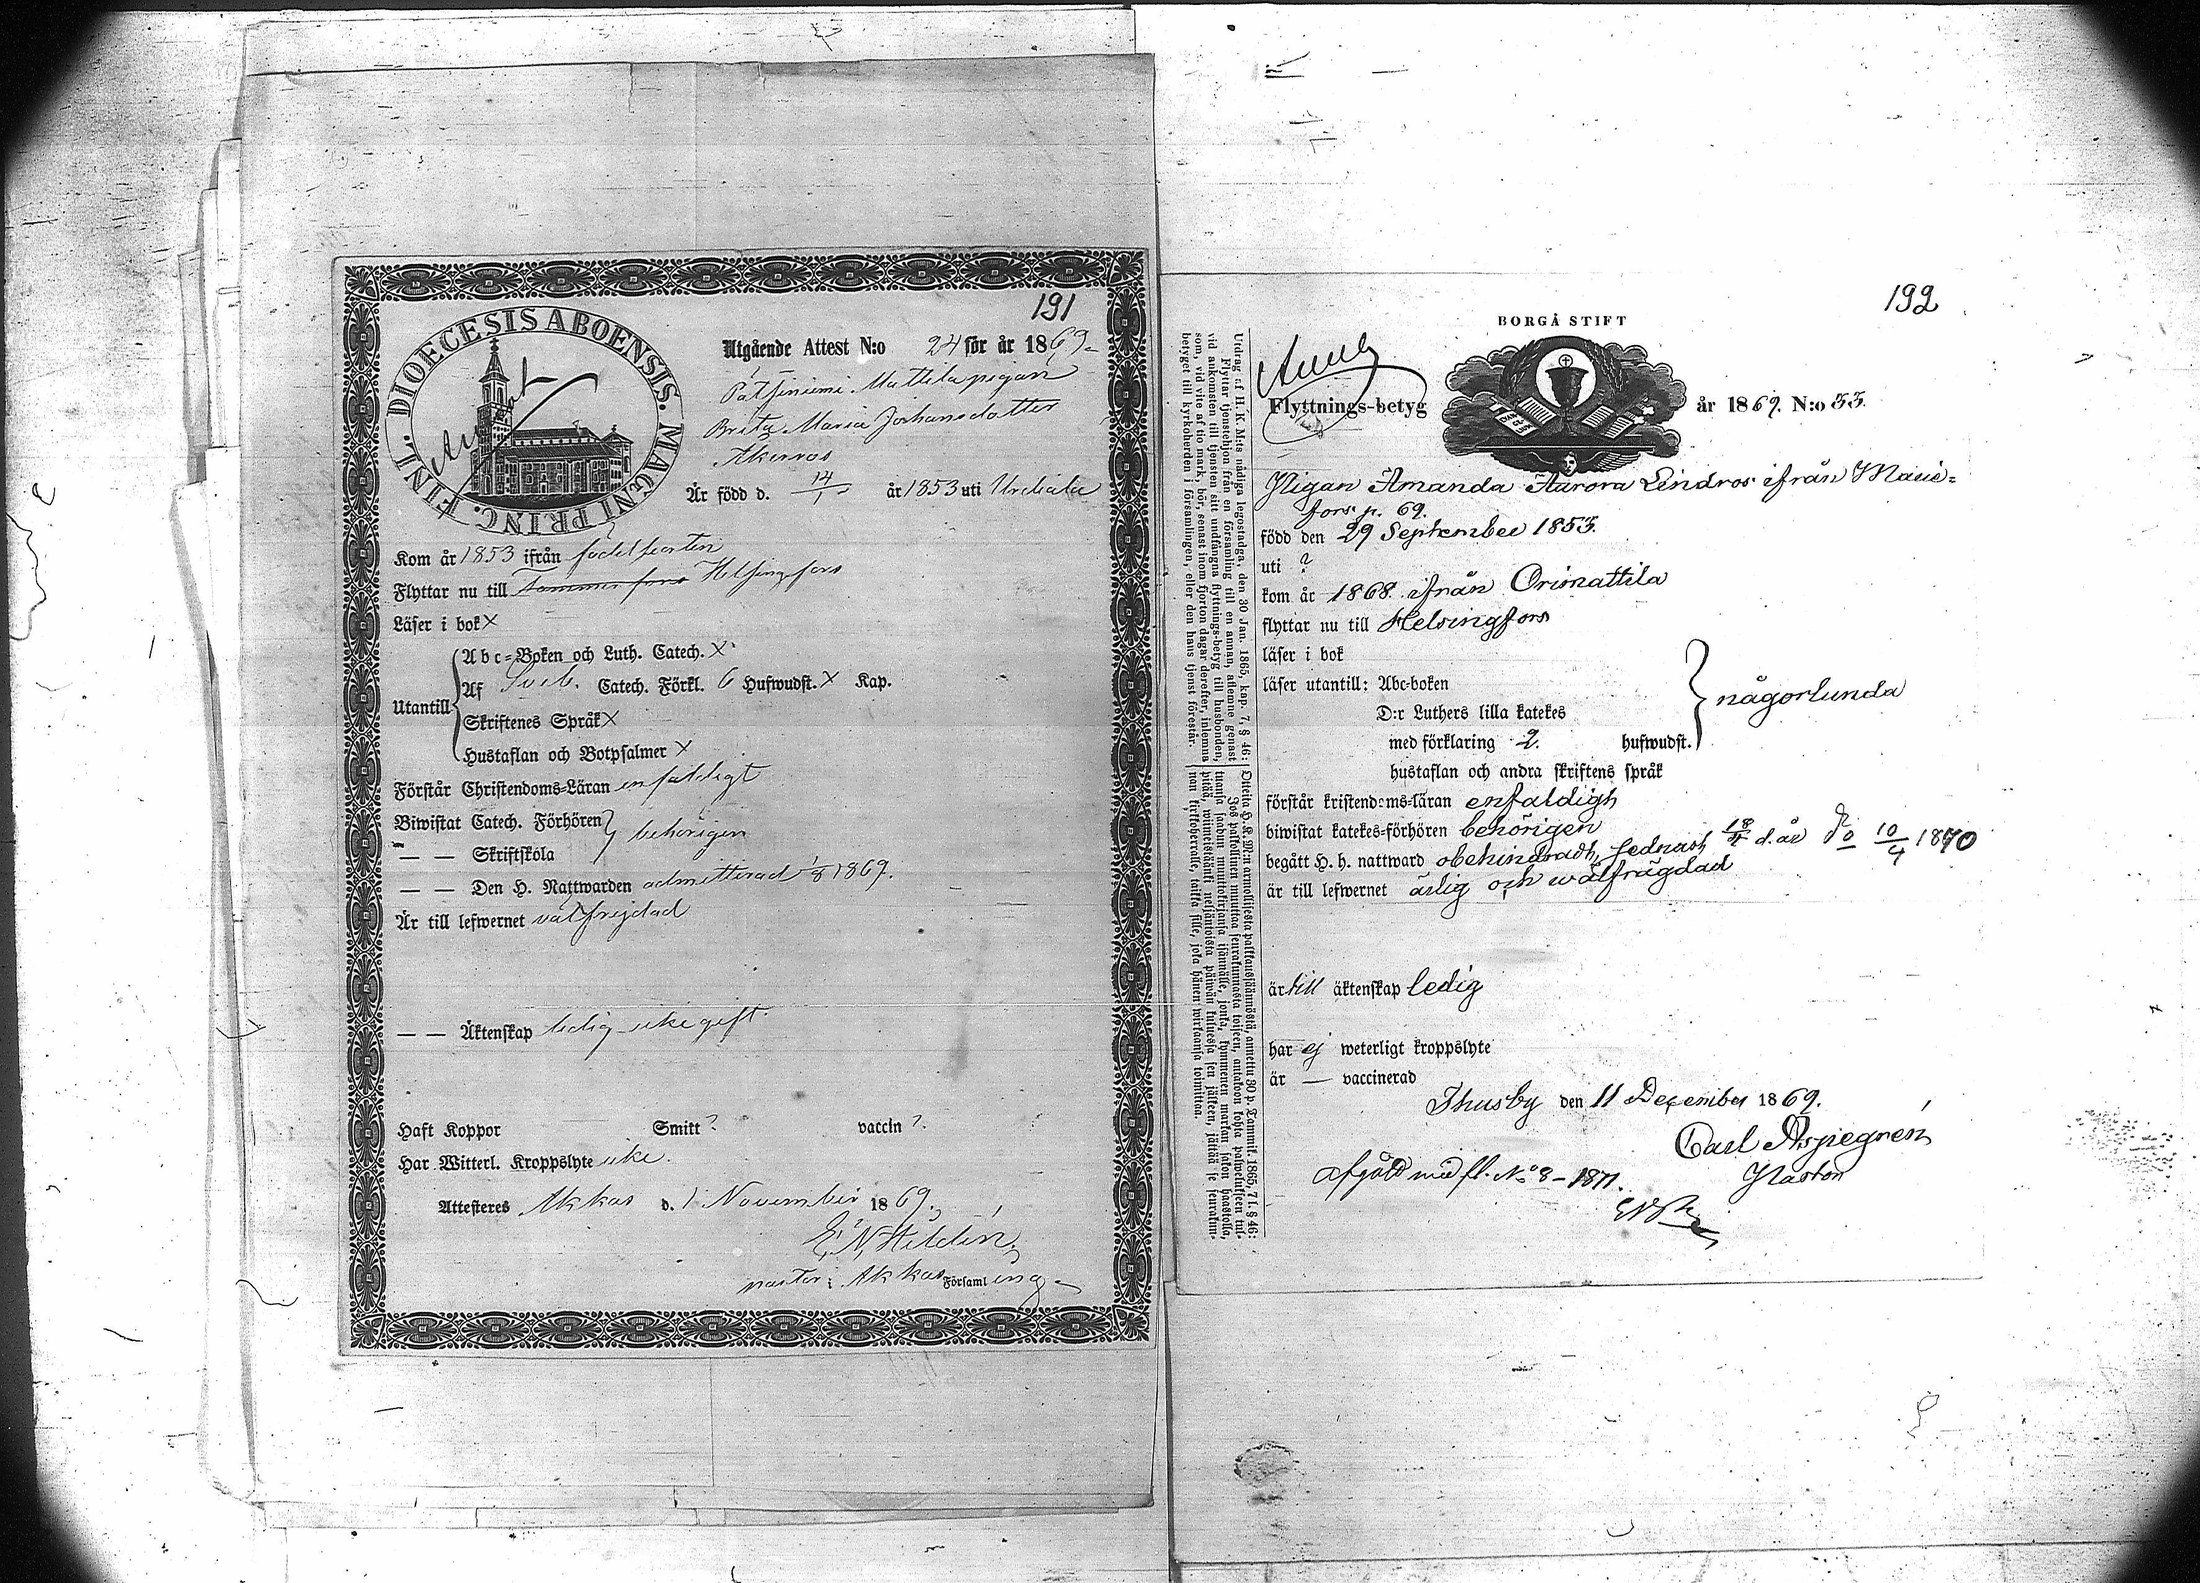 191
DIOECESIS ABOENSIS. MAGNI PRINC. FINL.
Utgående Attest N:o 24 för år 1869
Mattila pigan
Brita Maria Johansdotter
Är född d. 14/1 år 1853 uti Urdiala
Kom år 1853 ifrån födelseorten
Flyttar nu till Helsingfors
Läser i bok X
Utantill
Abc-Boken och Luth. Catech. X
Af Sveb. Catech. Förkl. 6 Hufwudst. X Kap.
Skriftenes Språk X
Hustaflan och Botpsalmer X
Förstår Christendoms-Läran enfaldigt
Biwistat Catech. Förhören
— — Skriftskola
behörigen
— — Den H. Nattwarden admitterad 1/8 1869.
Är till lefwernet välfrejdad
— — Äktenskap ledig icke gift
Haft Koppor Smitt? vaccin?
Har Witterl. Kroppslyte icke.
Attesteres Akkas d. 1 November 1869.
E. N. Heldén
pastor i Akkas Församling
192
BORGÅ STIFT
Flyttnings-betyg år 1869. N:o 53.
Pigan Amanda Aurora Lindros ifrån Marie-
fors p. 69.
född den 29 September 1853.
uti ?
kom år 1868 ifrån Orimattila
flyttar nu till Helsingfors
läser i bok
läser utantill: Abc-boken
D:r Luthers lilla katekes
någorlunda
med förklaring 2. hufwudst.
hustaflan och andra skriftens språk
förstår kristendoms-läran enfaldigt
biwistat katekes-förhören behörigen
begått H. h. nattward obehindradt, sednast 18/4 d. år do 10/4 1870
är till lefwernet ärlig och wälfrägdad
är till äktenskap ledig
har ej weterligt kroppslyte
är — vaccinerad
Thusby den 11 December 1869.
Carl Aspegrén
Pastor
Afgått med fl. No 8 - 1871.
Utdrag af H. K. M:ts nådiga legostadga, den 30 Jan. 1865, kap. 7, § 46:
Flyttar tjenstehjon från en församling till en annan, aflemne genast
vid ankomsten till tjensten sitt undfångna flyttnings-betyg till husbonden,
som, vid vite af tio mark, bör, senast inom fjorton dagar derefter, inlemna
betyget till kyrkoherden i församlingen, eller den hans tjenst förestår.